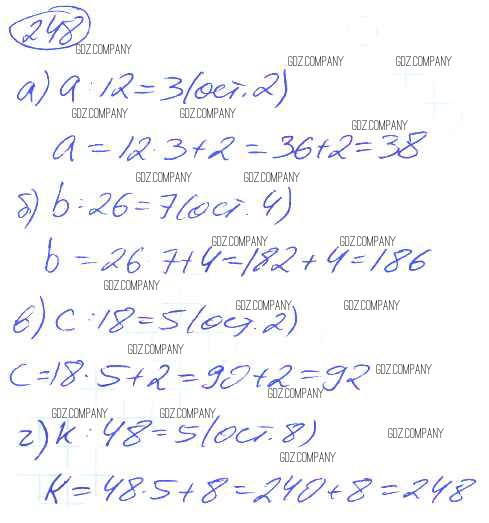 248
GDZ.COMPANY
GDZ.COMPANY GDZ.COMPANY
а) a : 12 = 3 (ост. 2)
GDZ.COMPANY GDZ.COMPANY
GDZ.COMPANY
a = 12 · 3 + 2 = 36 + 2 = 38
GDZ.COMPANY GDZ.COMPANY
б) b : 26 = 7 (ост. 4)
GDZ.COMPANY GDZ.COMPANY
b = 26 7 + 4 = 182 + 4 = 186
GDZ.COMPANY
GDZ.COMPANY GDZ.COMPANY
в) c : 18 = 5 (ост. 2)
GDZ.COMPANY
c = 18 · 5 + 2 = 90 + 2 = 92
GDZ.COMPANY
GDZ.COMPANY
GDZ.COMPANY GDZ.COMPANY
г) k : 48 = 5 (ост. 8)
GDZ.COMPANY
GDZ.COMPANY
k = 48 · 5 + 8 = 240 + 8 = 248